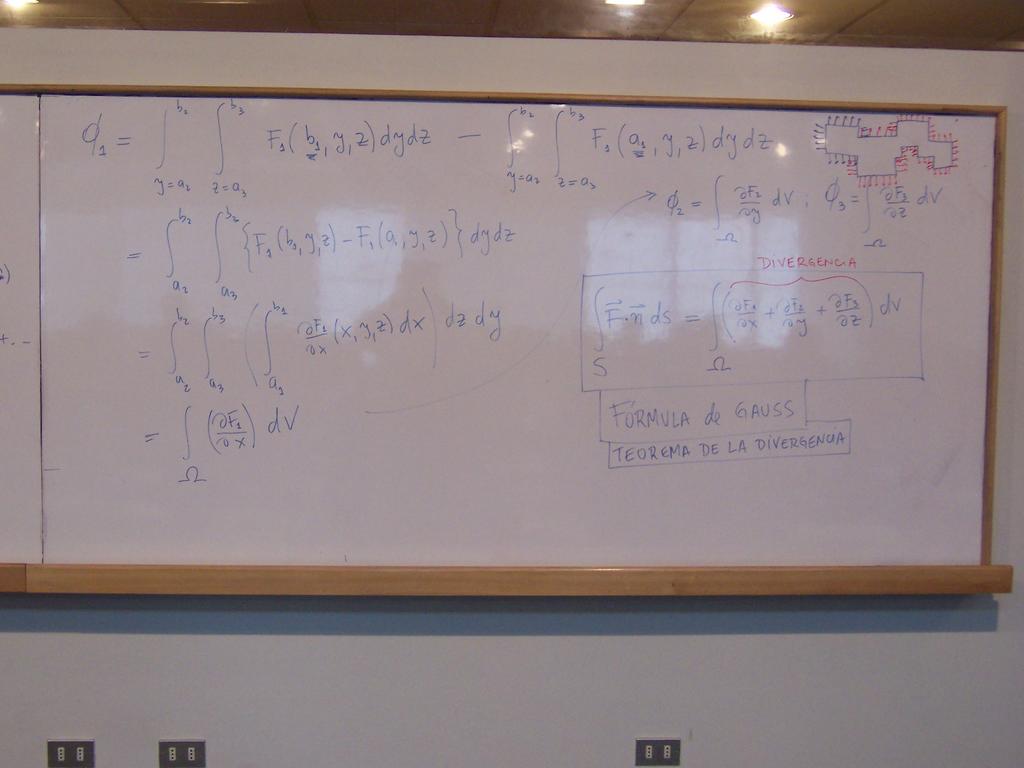 ϕ₁ = ∫_{y=a₂}^{b₂} ∫_{z=a₃}^{b₃} F₁(b₁, y, z) dy dz − ∫_{y=a₂}^{b₂} ∫_{z=a₃}^{b₃} F₁(a₁, y, z) dy dz
= ∫_{a₂}^{b₂} ∫_{a₃}^{b₂} {F₁(b₁, y, z) − F₁(a₁, y, z)} dy dz
= ∫_{a₂}^{b₂} ∫_{a₃}^{b₃} (∫_{a₁}^{b₁} ∂F₁/∂x (x, y, z) dx) dz dy
= ∫_Ω (∂F₁/∂x) dV
→ ϕ₂ = ∫_Ω ∂F₂/∂y dV ; ϕ₃ = ∫_Ω ∂F₃/∂z dV
DIVERGENCIA
∫_S F⃗·n⃗ ds = ∫_Ω (∂F₁/∂x + ∂F₂/∂y + ∂F₃/∂z) dV
FÓRMULA de GAUSS
TEOREMA DE LA DIVERGENCIA